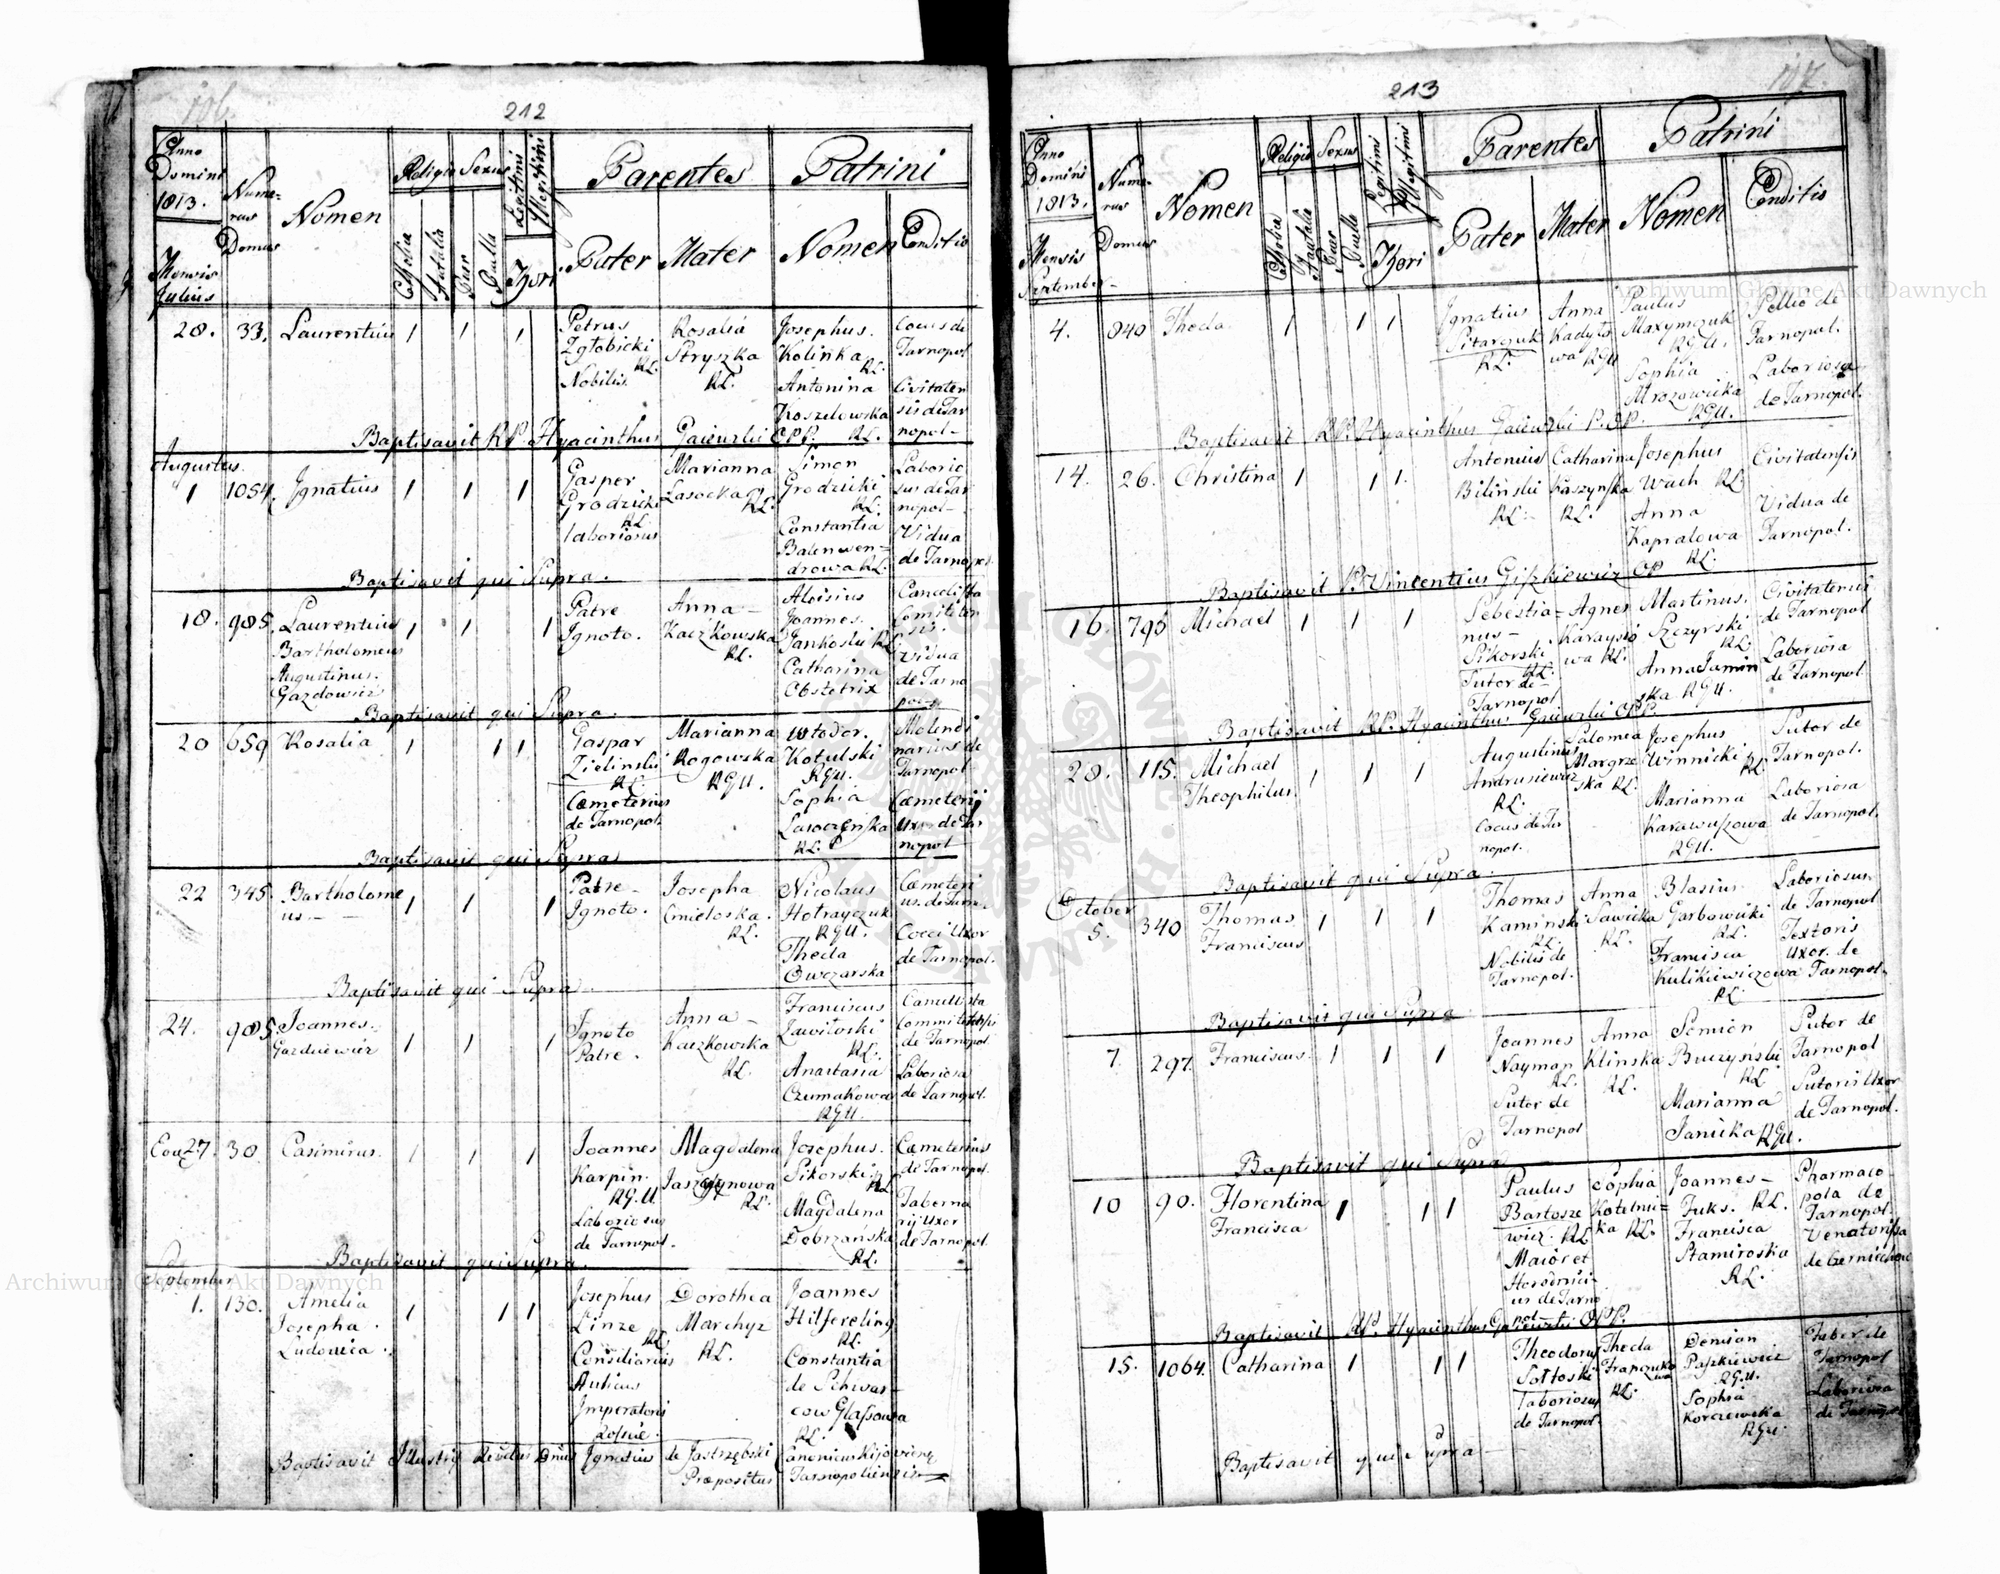 212
Anno
Domini
1813.
Mensis
Julius
Nume-
rus
Domus
Nomen
Religio
Sexus
Legitimi
Illegitimi
Thori
Puer
Puella
Parentes
Patrini
Pater
Mater
Nomen
Conditio
28. 33. Laurentius 1 1 1
Petrus
Zgłobicki
RL.
Nobilis.
Rosalia
Stryszka
RL.
Josephus.
Kolińka
RL.
Antonina
Koszelowska
RL.
Cocus de
Tarnopol
Civitaten
sis de Tar
nopol-
Baptisavit RP. Hyacinthus Gaiewski OPP.
Augustus.
1 1054. Ignatius 1 1 1
Gasper
Grodzicki
RL
laboriosus
Marianna
Lasocka
RL.
Simon
Grodzicki
RL.
Constantia
Balenwen-
drowa RL.
Laborio
sus de Tar
nopol-
Vidua
de Tarnopol.
Baptisavit qui Supra.
18. 985. Laurentius 1 1 1
Bartholomeus
Augustinus.
Gazdowicz
Patre
Ignoto.
Anna-
Kaczkowska
RL.
Aloisius
Joannes.
Jankoski RL
Catharina
Obstetrix
Cancelista
Comitaten
sis.
Vidua
de Tarno
pol-
Baptisavit qui Supra.
20 659 Rosalia 1 1 1
Gaspar
Zielinski
RL.
Cœmeterius
de Tarnopol.
Marianna
Rogowska
RGU.
Kotulski
RGU.
Sophia
Lasoczeńska
RL.
Molendi
narius de
Tarnopol
Cœmeterij
Uxor de Tar
nopol
Baptisavit qui Supra
22 345. Bartholome
us.- 1 1 1
Patre-
Ignoto.
Josepha
Cmieloska.
RL.
Nicolaus
Hotrayczuk
RGU.
Theda
Owczarska
Cœmeteri
us. de Tarn.
Cocci Uxor
de Tarnopol.
Baptisavit qui Supra
24. 985. Joannes. 1 1 1
Gazdziewicz
Ignoto
Patre.
Anna-
Kaczkowska
RL.
Franciscus
Zawiłoski
RL.
Anastasia
Czumakowa
RGU.
de Tarnopol
Laboriosa
de Tarnopol.
27. 30 Casimirus. 1 1 1
Joannes
Karpin.
RGU
Laboriosus
de Tarnopol.
Magdalena
RL.
Josephus.
Sikorski
RL
Magdalena
Dobrzańska
RL.
Cœmeterius
de Tarnopol.
Taberna
rij Uxor
de Tarnopol
Baptisavit qui Supra.
September
1. 130. Amelia 1 1 1
Josepha.
Ludovica.
Josephus
Linze
RL.
Consiliarius
Aulicus
Imperatoris
Dorothea
Marchyz
RL.
Joannes
Hilfereling
RL.
Constantia
de Schwar-
cow Glassowa
RL.
Baptisavit Illustris Dnus Ignatius de Jastrzębski Canonicus Kijoviens
Præpositus Tarnopoliensis
213
Anno
Domini
1813.
Mensis
September-
Nume-
rus
Domus
Nomen
Religio
Sexus
Puer
Puella
Legitimi
Illegitimi
Thori
Parentes
Patrini
Pater
Mater
Nomen
Conditio
4. 840 Theda 1 1 1
Ignatius
Pitarczuk
RL.
Anna
Kadyło
wa RGU
Paulus
Maxymczuk
RGU.
Sophia
Mrozowicka
RGU.
Pellio de
Tarnopol.
Laboriosa
de Tarnopol.
Baptisavit RP. Hyacinthus Gaiewski P. OP.
14. 26. Christina 1 1 1.
Antonius
Biliński
RL.-
Catharina
Kaszyńska
RL.
Josephus
Wach RL.
Anna
Kapralowa
RL.
Civitatensis
Vidua de
Tarnopol.
Baptisavit P. Vincentius Giszkiewicz OP
16. 795 Michael 1 1 1
Sebestia=
nus-
Sikorski
RL.
Sutor de-
Tarnopol
Agnes
Karaysio
wa RL.
Martinus.
Szczyrski
RL.
Anna Jamin
ska RGU.
Civitatensis
de Tarnopol
Laboriosa
de Tarnopol.
Baptisavit RP. Hyacinthus Gaiewski OPP.
28. 115. Michael 1 1 1
Theophilus.
Augustinus
Andrusiewicz
RL.
Cocus de Tar
nopol.
Salomea
Margrze
ska RL.
Josephus
Winnicki RL
Marianna
Karawuszowa
RGU.
Sutor de
Tarnopol.
Laboriosa
de Tarnopol.
Baptisavit qui Supra.
October
5. 340 Thomas 1 1 1
Franciscus
Thomas
Kaminski
RL.
Nobilis de
Tarnopol.
Anna
Sawicka
RL.
Blasius
Garbowicki
RL.
Francisca
Kulikiewiczowa
RL.
Laboriosus
de Tarnopol
Textoris
Uxor. de
Tarnopol.
Baptisavit qui Supra
7. 297. Franciscus. 1 1 1
Joannes
Nayman
RL.
Sutor de
Tarnopol
Anna
Klinska
RL.
Semion
Buczyński
RL
Marianna
Janicka RGU.
Sutor de
Tarnopol
Sutoris Uxor
de Tarnopol.
Baptisavit qui Supra
10 90. Florentina 1 1 1
Francisca
Paulus
Bartosze
wicz. RL
Maior et
us de Tarno
pol-
Sophia
Kotelnic=
ka RL.
Joannes-
Fuks. RL.
Francisca
Stamiroska
RL.
Pharmaco
pola de
Tarnopol.
Venatorissa
Baptisavit RP. Hyacinthus Gaiewski OPP.
15. 1064. Catharina 1 1 1
Theodorus
Sołtoski
Laboriosus
de Tarnopol.
Theda
RL.
Demian
Paszkiewicz
RGU.
Sophia
Korczewska
RGU.
Faber de
Tarnopol
Laboriosa
de Tarnopol
Baptisavit qui Supra-
Archiwum Główne Akt Dawnych
Archiwum Główne Akt Dawnych